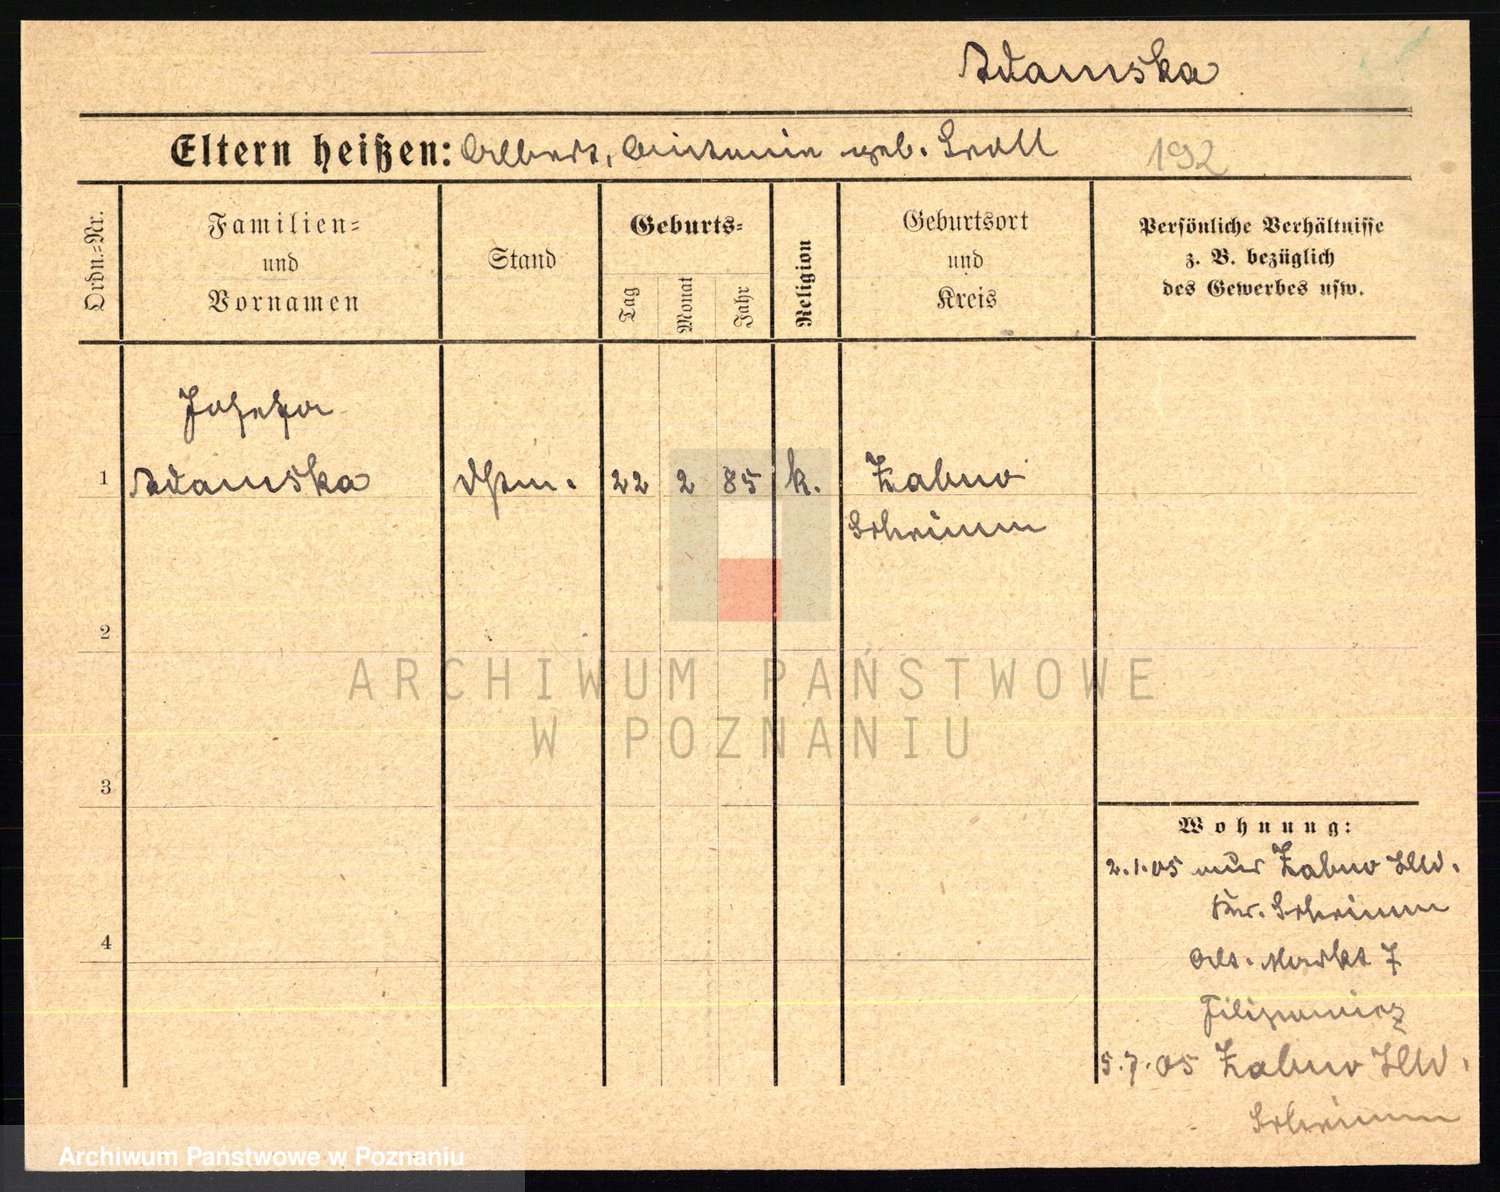 Adamska
Eltern heißen: Albert, Antonie geb. Groll
192
Ordn.=Nr.
Familien=
und
Vornamen
Stand
Geburts=
Tag
Monat
Jahr
Religion
Geburtsort
und
Kreis
Persönliche Verhältnisse
z. B. bezüglich
des Gewerbes usw.
Josefa
1 Adamska 22 2 85 k. Zabno
Schrimm
2
3
4
ARCHIWUM PAŃSTWOWE
W POZNANIU
Wohnung:
2.1.05 aus Zabno
Kr. Schrimm
Alt. Markt 7
Filipowicz
5.7.05 Zabno
Schrimm
Archiwum Państwowe w Poznaniu